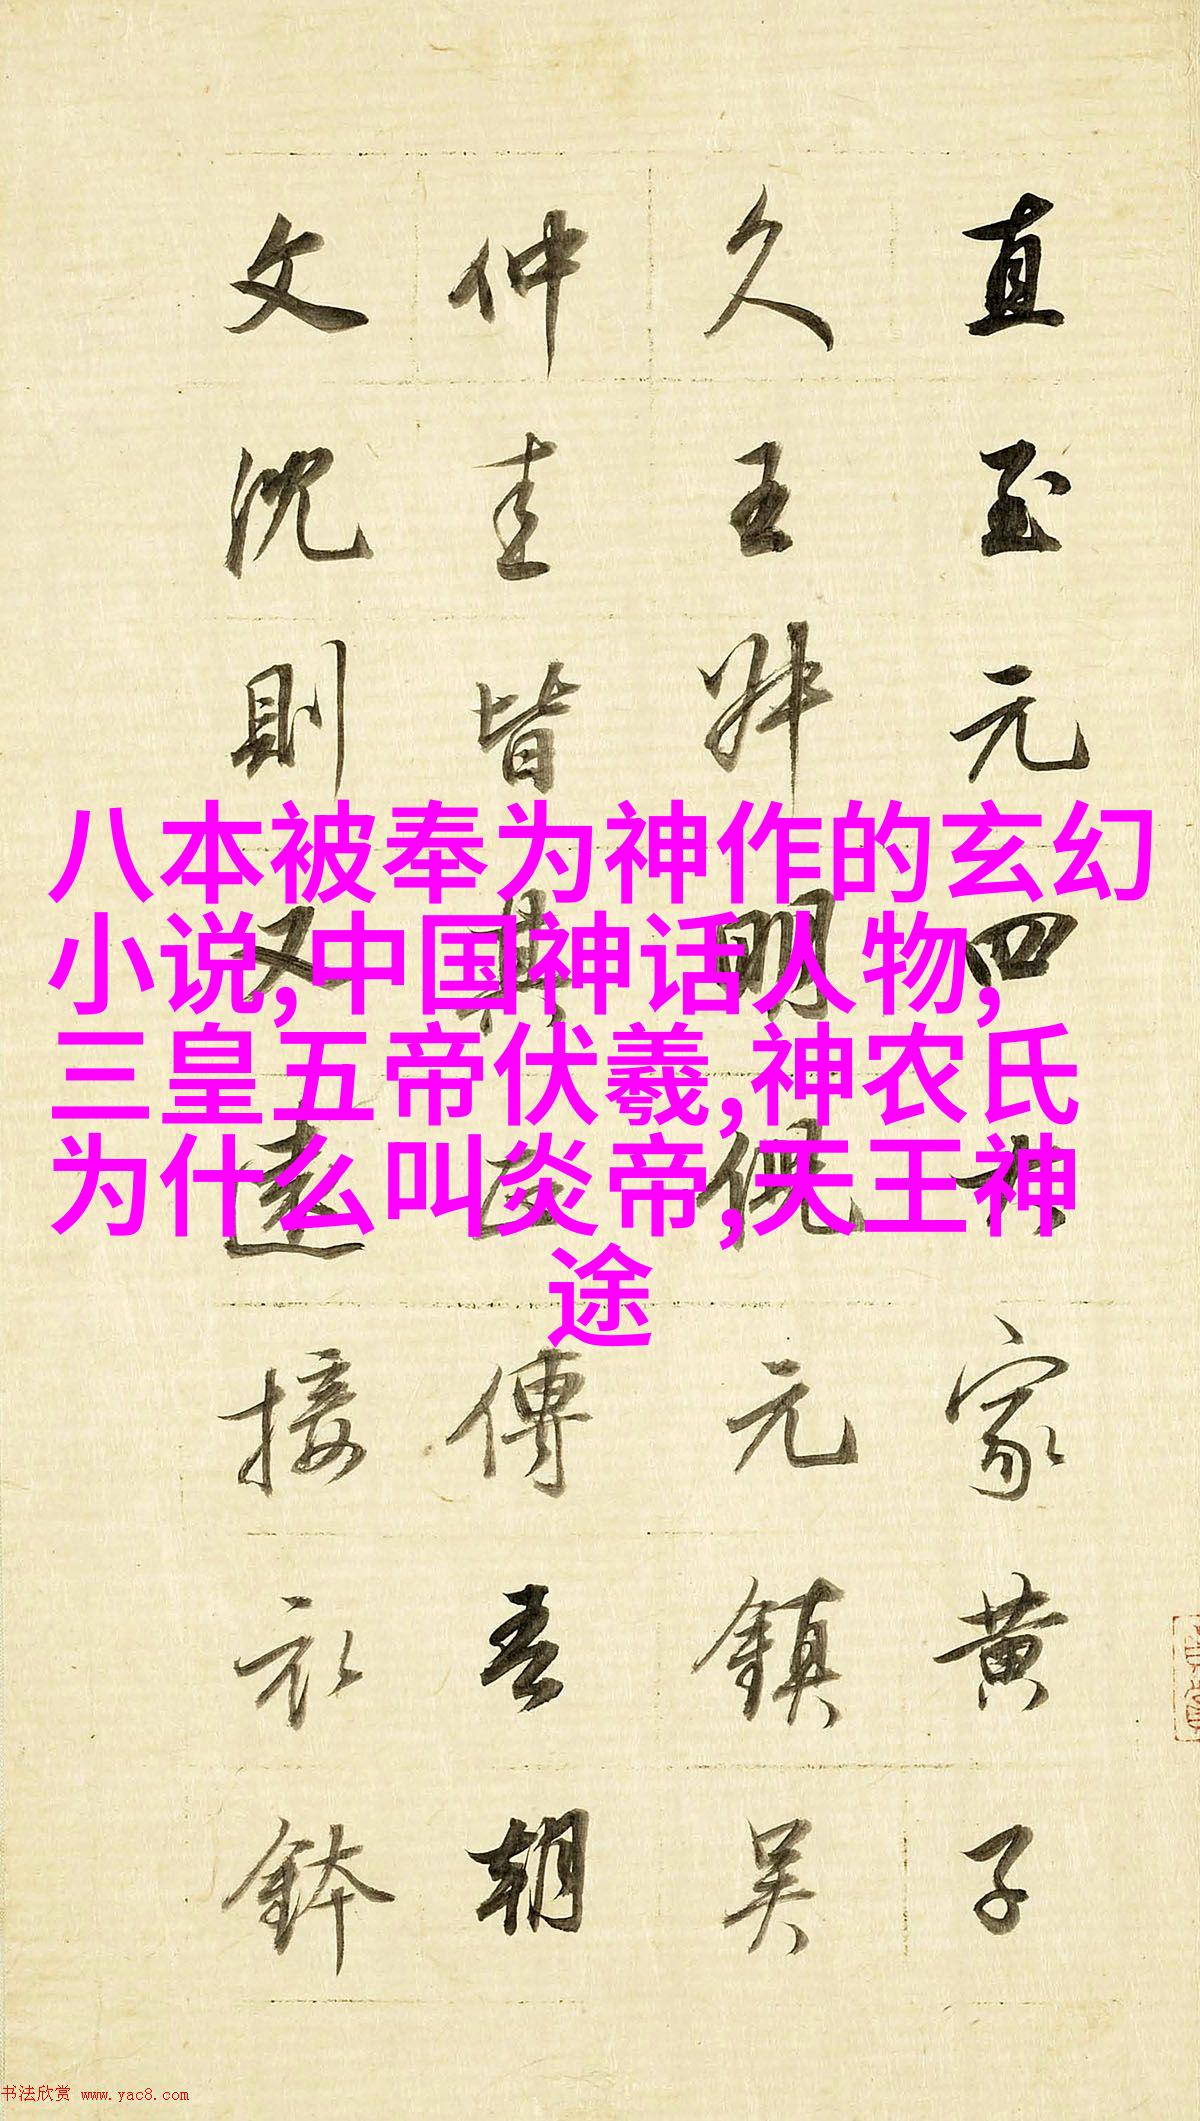 直至元四大家黄子
久王叔明倪元鎮吳
仲圭皆其正傳吾朝
文沈則又遠接衣鉢
八本被奉为神作的玄幻
小说,中国神话人物,
三皇五帝伏羲,神农氏
为什么叫炎帝,天王神
途
书法欣赏 www.yac8.com